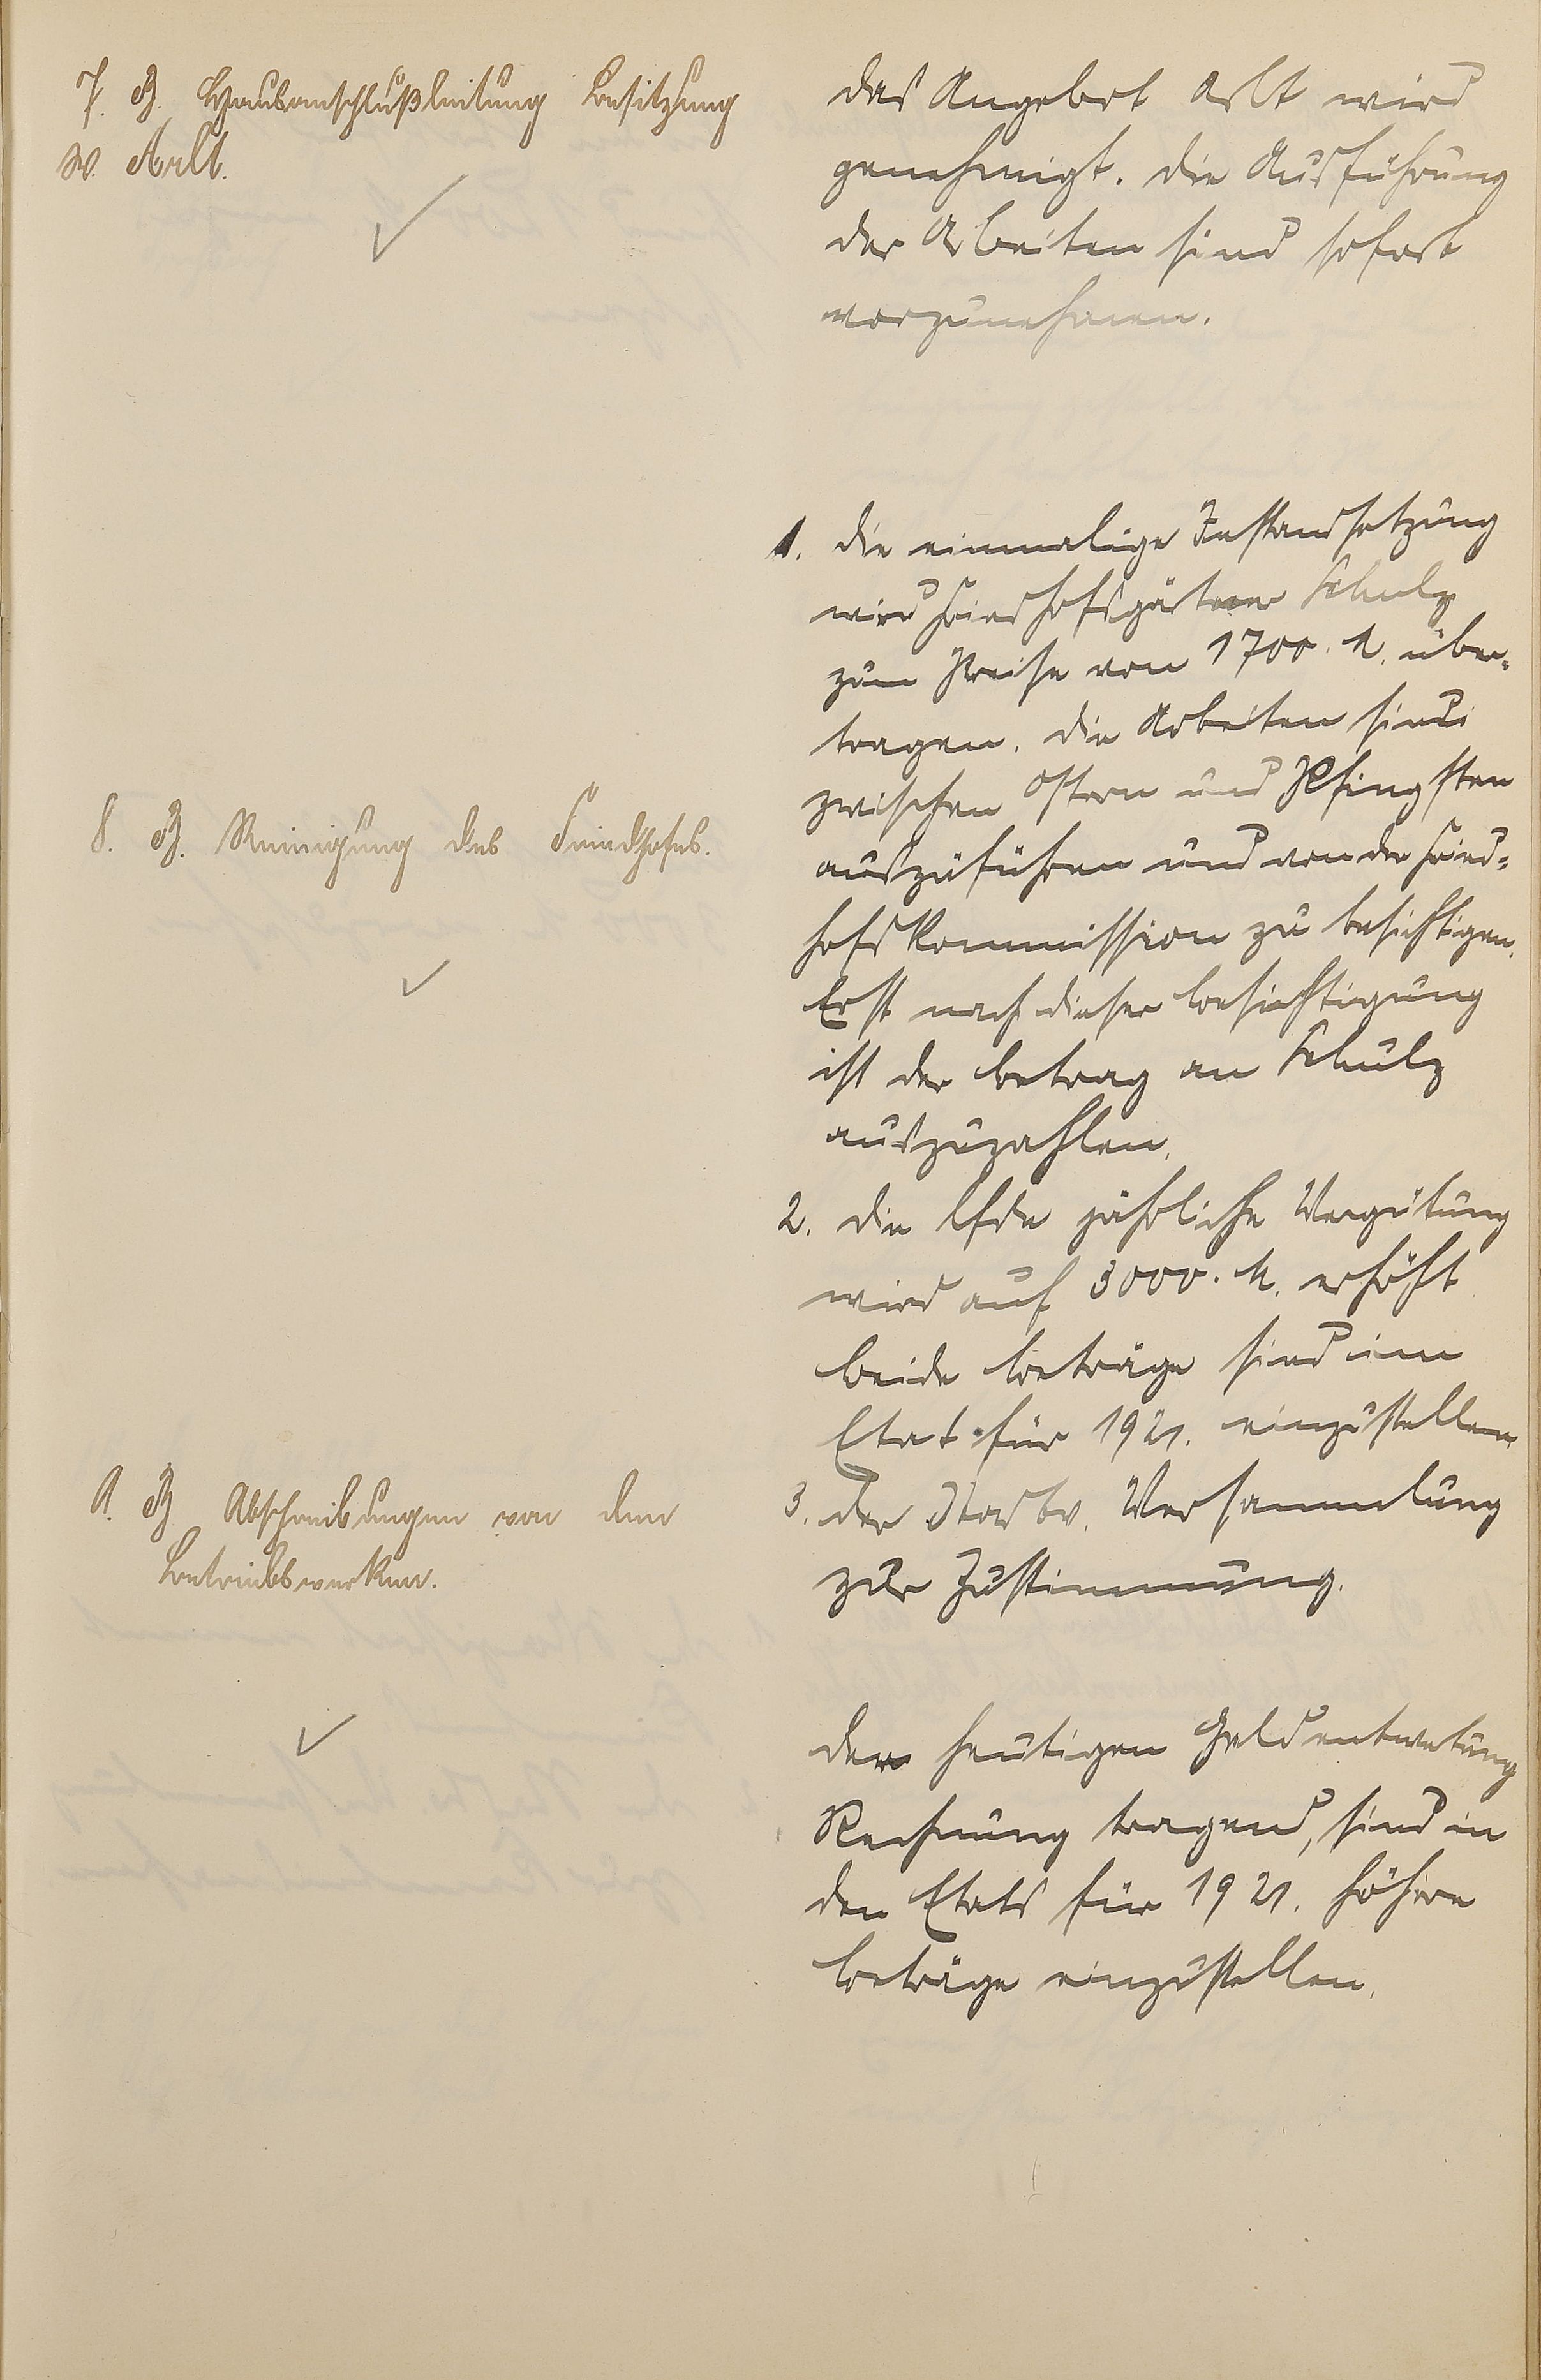 7. B. Hausanschlußleitung Besitzung
W. Arlt.
das Angebot Arlt wird
genehmigt. die Ausführung
der Arbeiten sind sofort
vorzunehmen.
8. B. Reinigung des Friedhofes.
1. die einmalige Instandsetzung
wird Friedhofsgärtner Schulz
zum Preise von 1700. M. über-
tragen. die Arbeiten sind
zwischen Ostern und Pfingsten
auszuführen und von der Fried-
hofs Kommission zu besichtigen.
Erst nach dieser Besichtigung
ist der Betrag an Schulz
auszuzahlen.
2. die lfde jährliche Vergütung
wird auf 3000. M. erhöht
beide Beträge sind im
Etat für 1921. einzustellen
3. der Stadtv. Versammlung
zur Zustimmung.
9. B Abschreibungen von den
Betriebswerken.
der heutigen Geldentwetung
Rechnung tragend, sind in
den Etats für 1921. höhere
Beträge einzustellen.